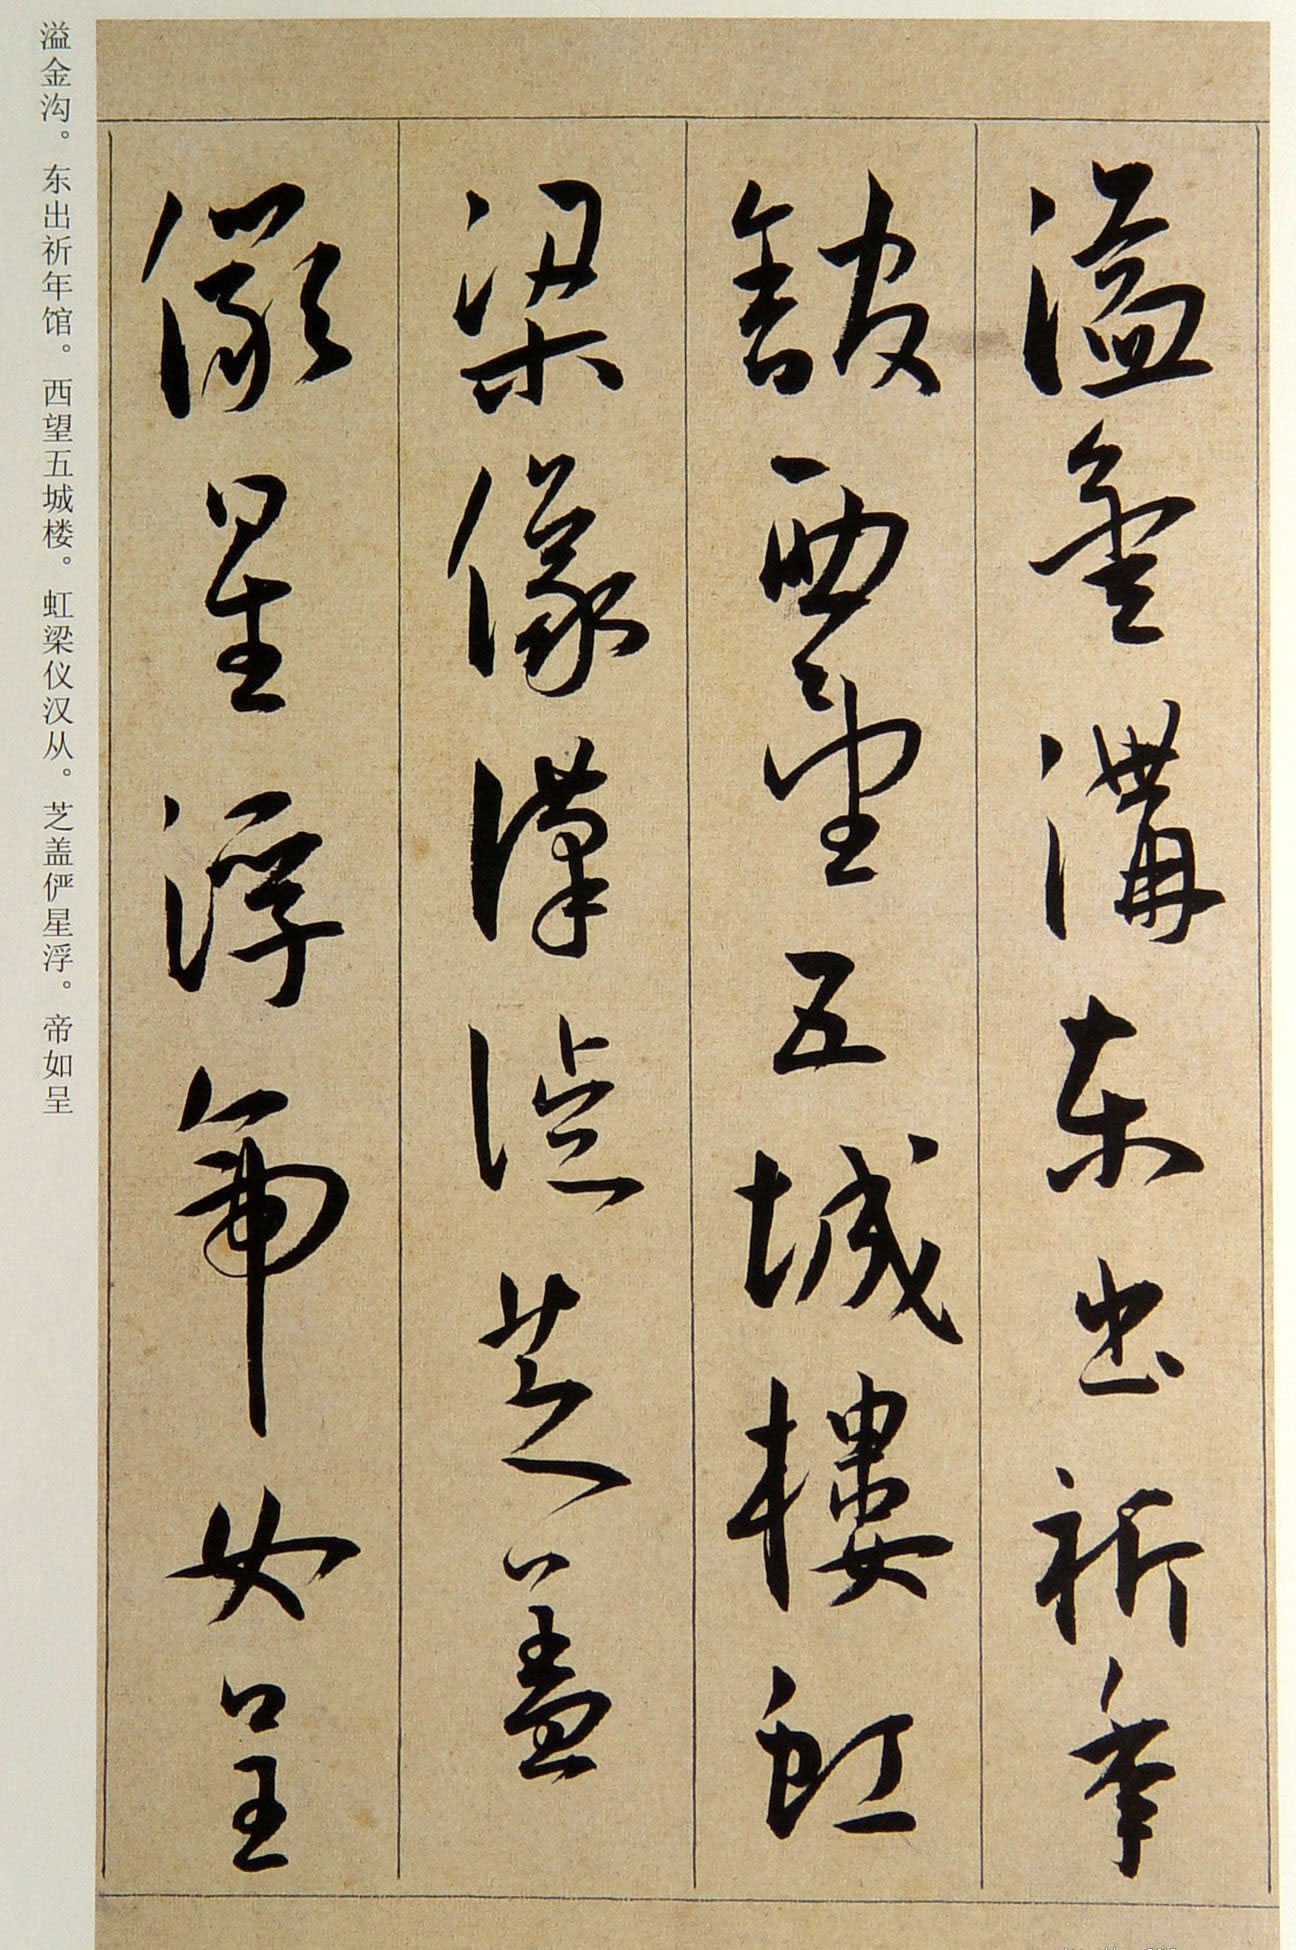 溢金溝東出祈年
館西望五城樓虹
梁像漢從芝蓋
儼星浮帝女呈
溢金沟。东出祈年馆。西望五城楼。虹梁仪汉从。芝盖俨星浮。帝如呈